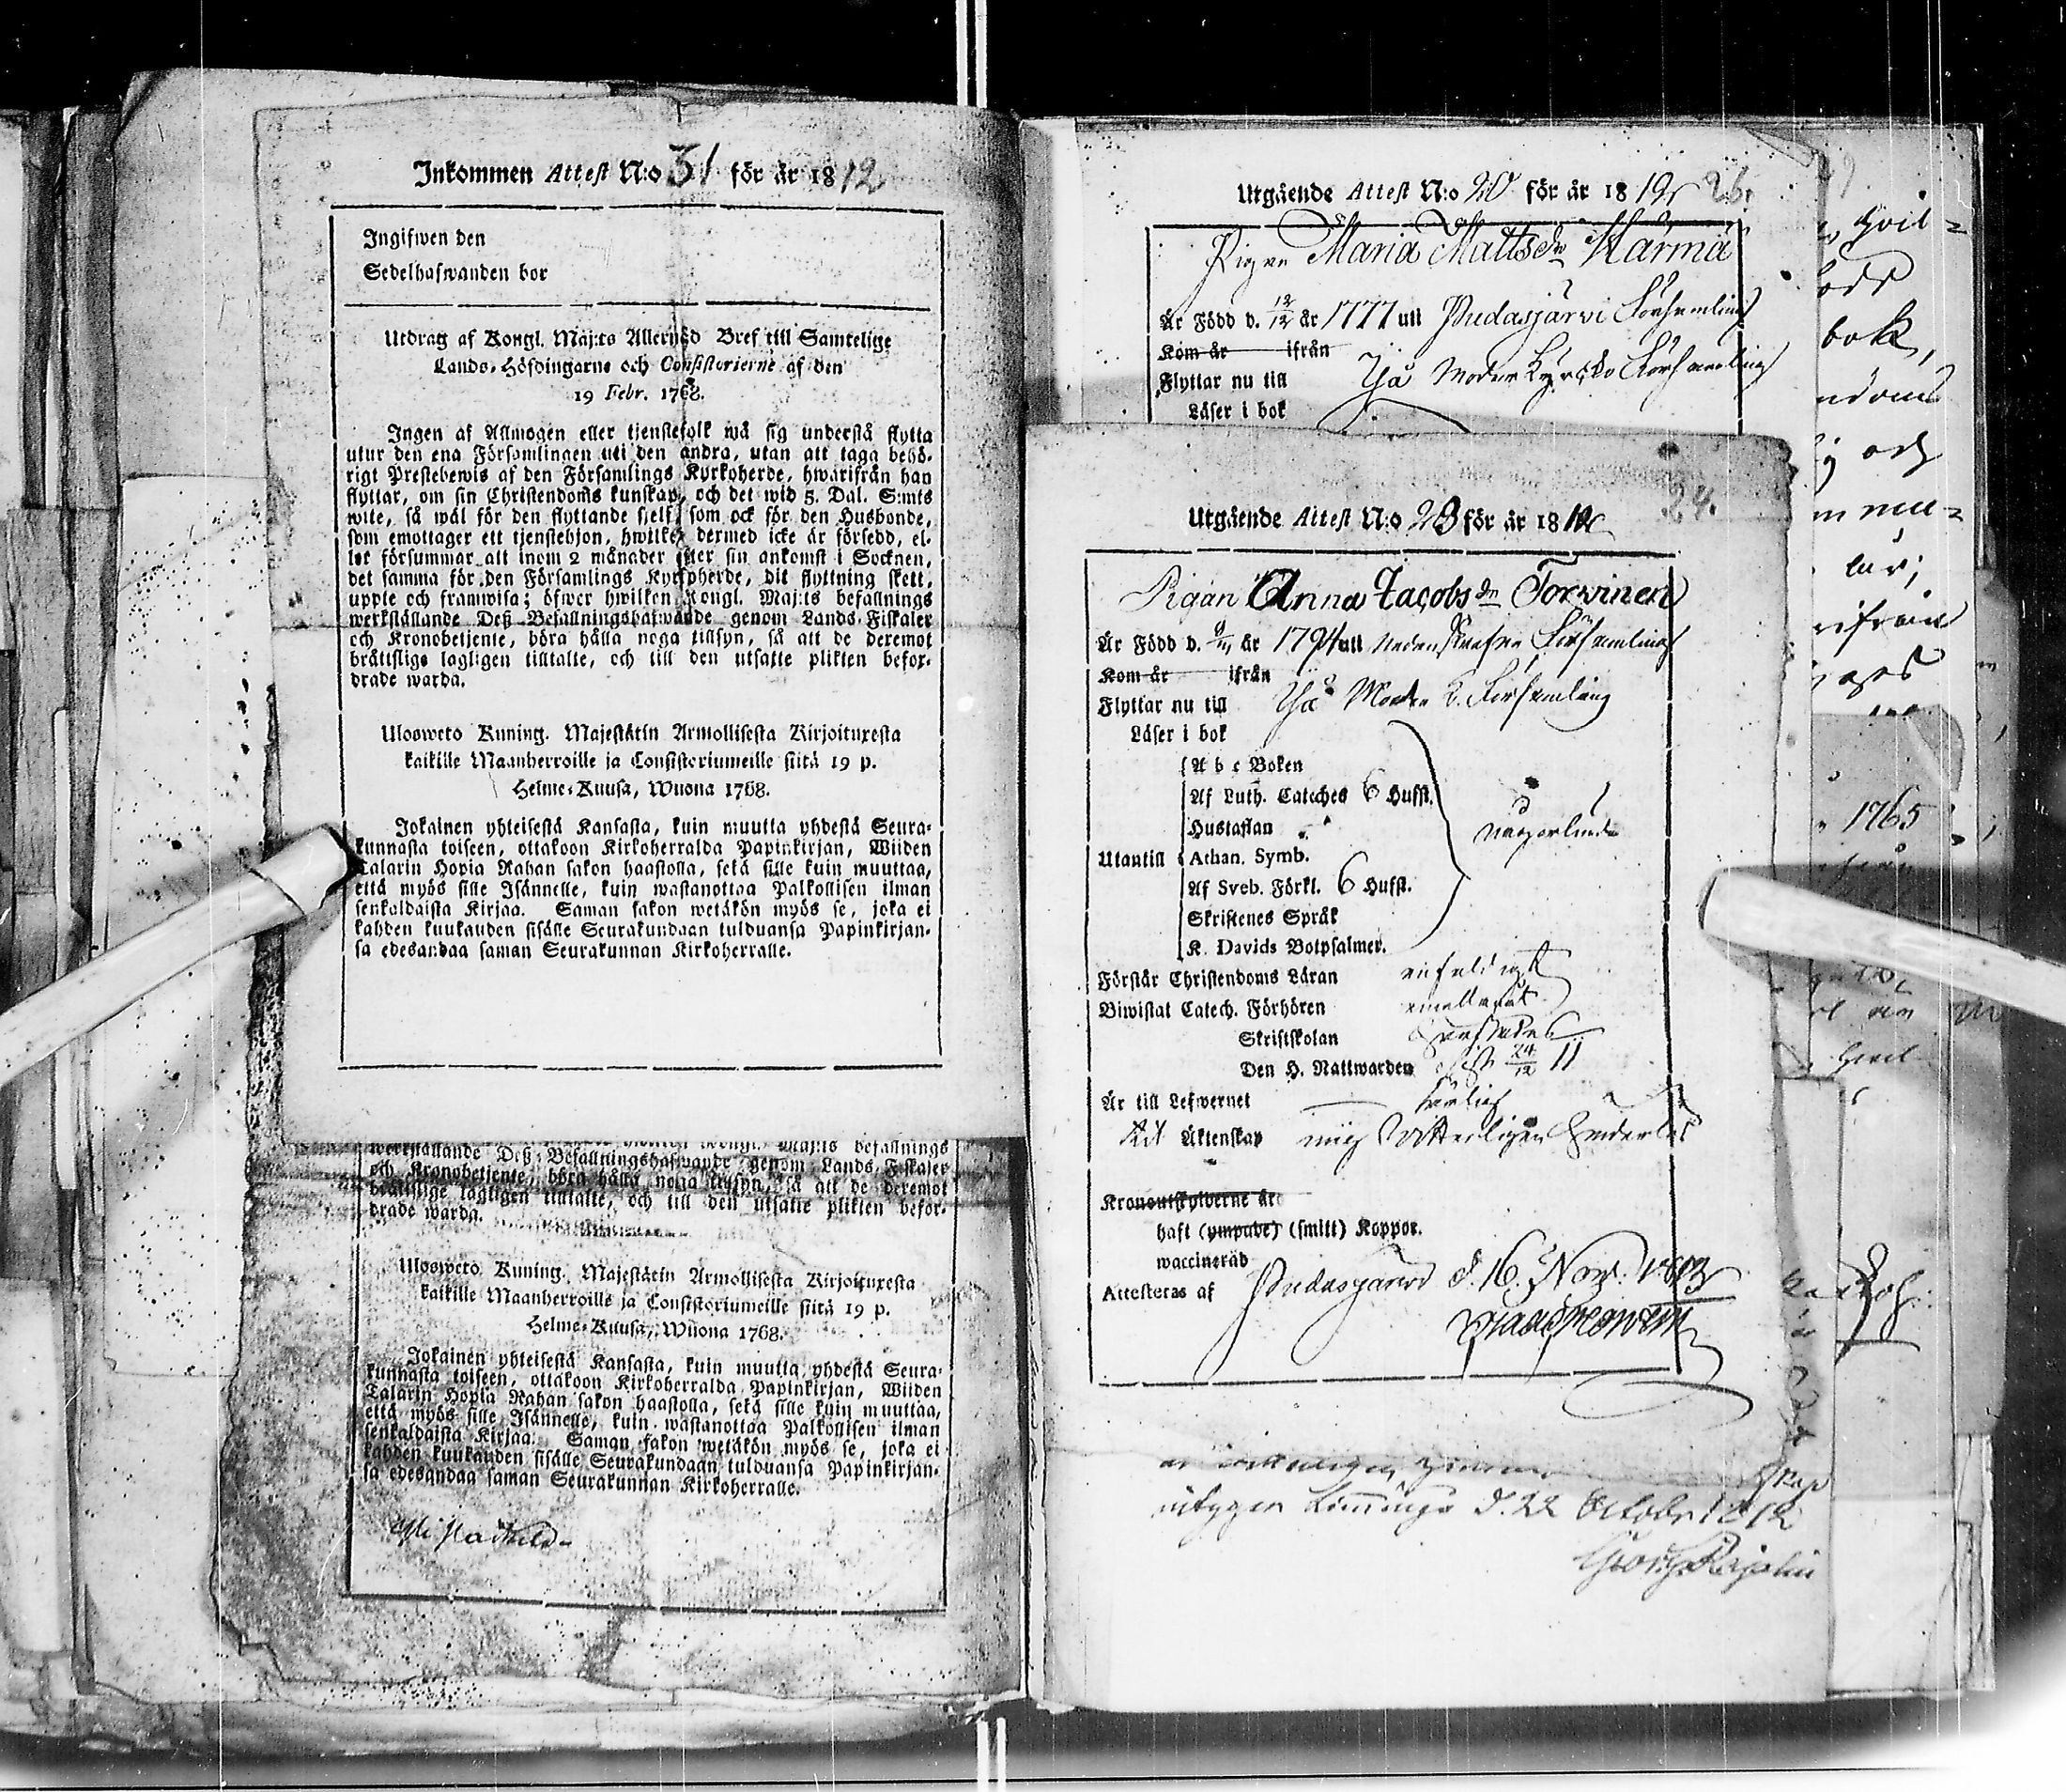 Inkommen Attest N:o 31 för år 1812
Ingifwen den
Sedelhafwanden bor
Utdrag af Kongl. Maj:ts Allernåd Bref till Samtelige
Lands-Höfdingarne och Consistorierne af den
19 Febr. 1768.
Ingen af Allmogen eller tjenstefolk må sig understå flytta
utur den ena Församlingen uti den andra, utan att taga behö-
rigt Prestebewis af den Församlings Kyrkoherde, hwarifrån han
flyttar, om sin Christendoms kunskap, och det wid 5. Dal. S:mts
wite, så wäl för den flyttande sjelf, som ock för den Husbonde,
som emottager ett tjenstehjon, hwilket dermed icke är försedd, el-
ler försummar att inom 2 månader efter sin ankomst i Socknen,
det samma för den Församlings Kyrkoherde, dit flyttning skett,
uppte och framwisa; öfwer hwilken Kongl. Maj:ts befallnings
werkställande Deß Befallningshafwande genom Lands-Fiskaler
och Kronobetjente, böra hålla noga tillsyn, så att de deremot
bråttslige lagligen tilltalte, och till den utsatte plikten befor-
drade warda.
Ulosweto Kuning. Majestätin Armollisesta Kirjoituxesta
kaikille Maanherroille ja Consistoriumeille siitä 19 p.
Helme-Kuusa, Wuona 1768.
Jokainen yhteisestä Kansasta, kuin muutta yhdestä Seura-
kunnasta toiseen, ottakoon Kirkoherralda Papinkirjan, Wiiden
Talarin Hopia Rahan sakon haastolla, sekä sille kuin muuttaa,
että myös sille Isännelle, kuin wastanottaa Palkollisen ilman
senkaldaista Kirjaa. Saman sakon wetäkön myös se, joka ei
kahden kuukauden sisälle Seurakundaan tulduansa Papinkirjan-
sa edesandaa saman Seurakunnan Kirkoherralle.
werkställande Deß Befallningshafwande genom Lands-Fiskaler
och Kronobetjente, böra hålla noga tillsyn, så att de deremot
bråttslige lagligen tilltalte, och till den utsatte plikten befor-
drade warda.
Ulosweto Kuning. Majestätin Armollisesta Kirjoituxesta
kaikille Maanherroille ja Consistoriumeille siitä 19 p.
Helme-Kuusa, Wuona 1768.
Jokainen yhteisestä Kansasta, kuin muutta yhdestä Seura-
kunnasta toiseen, ottakoon Kirkoherralda Papinkirjan, Wiiden
Talarin Hopia Rahan sakon haastolla, sekä sille kuin muuttaa,
että myös sille Isännelle, kuin wastanottaa Palkollisen ilman
senkaldaista Kirjaa. Saman sakon wetäkön myös se, joka ei
kahden kuukauden sisälle Seurakundaan tulduansa Papinkirjan-
sa edesandaa saman Seurakunnan Kirkoherralle.
Utgående Attest N:o 20 för år 1812 26.
Pigan Maria Mattsdr Härmä
Är Född d. 12/12 år 1777 uti Pudasjärvi Församling
Kom år ifrån
Flyttar nu till Ijå Moder Kyrcko Församling
Läser i bok
24.
Utgående Attest N:o 23 för år 1812
Pigan Anna Jacobsdr Torvinen
Är Född d. år 1794 uti Församling
Kom år ifrån
Flyttar nu till Ijå Moder K. Församling
Läser i bok
A b c Boken
Af Luth. Cateches 6 Hufst.
Hustaflan
Utantill Athan. Symb.
Af Sveb. Förkl. 6 Hufst.
Skriftenes Språk
K. Davids Botpsalmer.
någorlunda
Förstår Christendoms Läran enfaldigt
Biwistat Catech. Förhören emellanåt
Skriftskolan
Den H. Nattwarden sist 24/12 11
Är till Lefwernet ärlig
till Äktenskap mig Vitterligen hinderlös
Kronoutskylderne år
haft (ympade) (smitt) Koppor.
waccinerad
Attesteras af Pudasjärvi d. 16. Nov. 1812
intygar Limingo d. 22 October 1812
1765
bok,